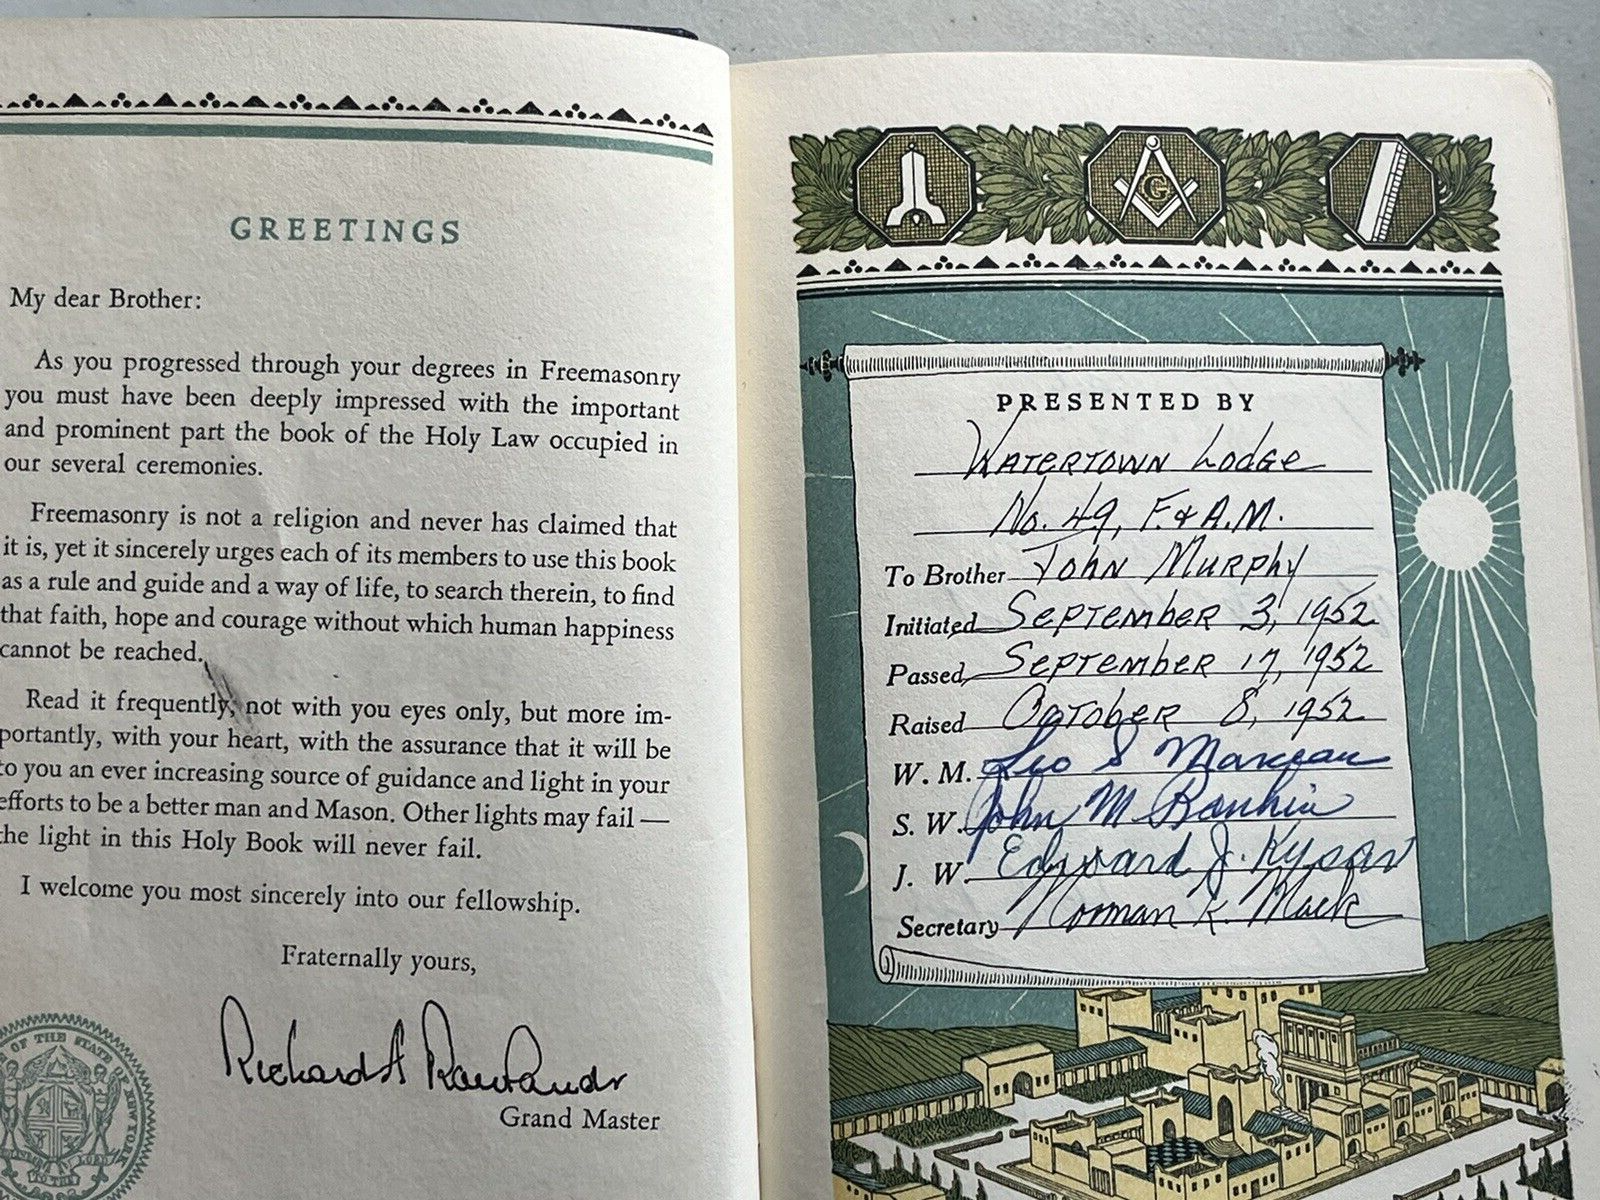 GREETINGS
My dear Brother:
As you progressed through your degrees in Freemasonry
you must have been deeply impressed with the important
and prominent part the book of the Holy Law occupied in
our several ceremonies.
Freemasonry is not a religion and never has claimed that
it is, yet it sincerely urges each of its members to use this book
as a rule and guide and a way of life, to search therein, to find
that faith, hope and courage without which human happiness
cannot be reached.
Read it frequently, not with you eyes only, but more im-
portantly, with your heart, with the assurance that it will be
to you an ever increasing source of guidance and light in your
efforts to be a better man and Mason. Other lights may fail —
the light in this Holy Book will never fail.
I welcome you most sincerely into our fellowship.
Fraternally yours,
Richard A Rowlands
Grand Master
OF THE STATE OF NEW YORK
G
PRESENTED BY
Watertown Lodge
No. 49, F. & A.M.
To Brother John Murphy
Initiated September 3, 1952
Passed September 17, 1952
Raised October 8, 1952
W. M. Leo S
S. W. John M Rankin
J. W. Edward J.
Secretary Norman K. Mack